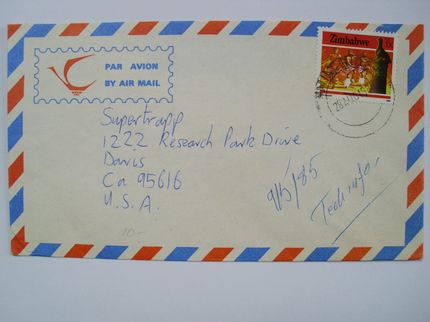 Zimbabwe
PAR AVION
BY AIR MAIL
Supertrapp
1222 Research Park Drive
Davis
Ca 95616
U.S.A.
9/5/85
Tech info.
10-